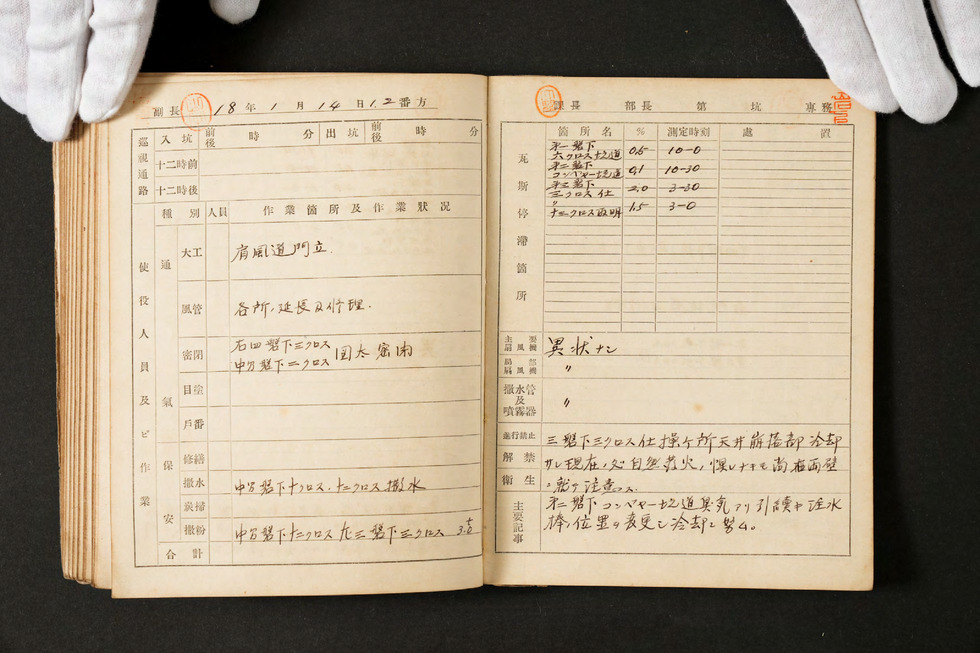 副長 18年1月14日1.2番方
巡視通路 入坑 前後 時 分 出坑 前後 時 分
十二時前
十二時後
使役人員及ビ作業
種別 人員 作業箇所及作業狀况
通氣
大工 肩風道門立.
風管 各所ノ延長及修理.
密閉 右四盤下三クロス
中方盤下二クロス 密閉
目塗
戶番
保安
修繕
撒水 中方盤下十クロス.十二クロス撒水
炭掃
撒粉 中方盤下十二クロス 三盤下三クロス 3.0
合計
課長 部長 第 坑 專務
瓦斯停滯箇所
箇所名 % 測定時刻 處置
第一盤下
六クロス 坑道 0.5 10-0
第二盤下
コンベヤー坑道 0.1 10-30
第三盤下
三クロス仕 2.0 3-30
〃
十二クロス 1.5 3-0
主要扇風機 異狀ナシ
局部扇風機 〃
撒水管及噴霧器 〃
進行禁止解禁衛生
三盤下三クロス仕操ケ所天井崩落部冷却
サレ現在ノ処自然発火ノ惧レナキモ尚右両壁
ニ就テ注意ス.
主要記事
第二盤下コンベヤー坑道臭気アリ引續キ注水
棒ノ位置ヲ変更シ冷却ニ努ム。